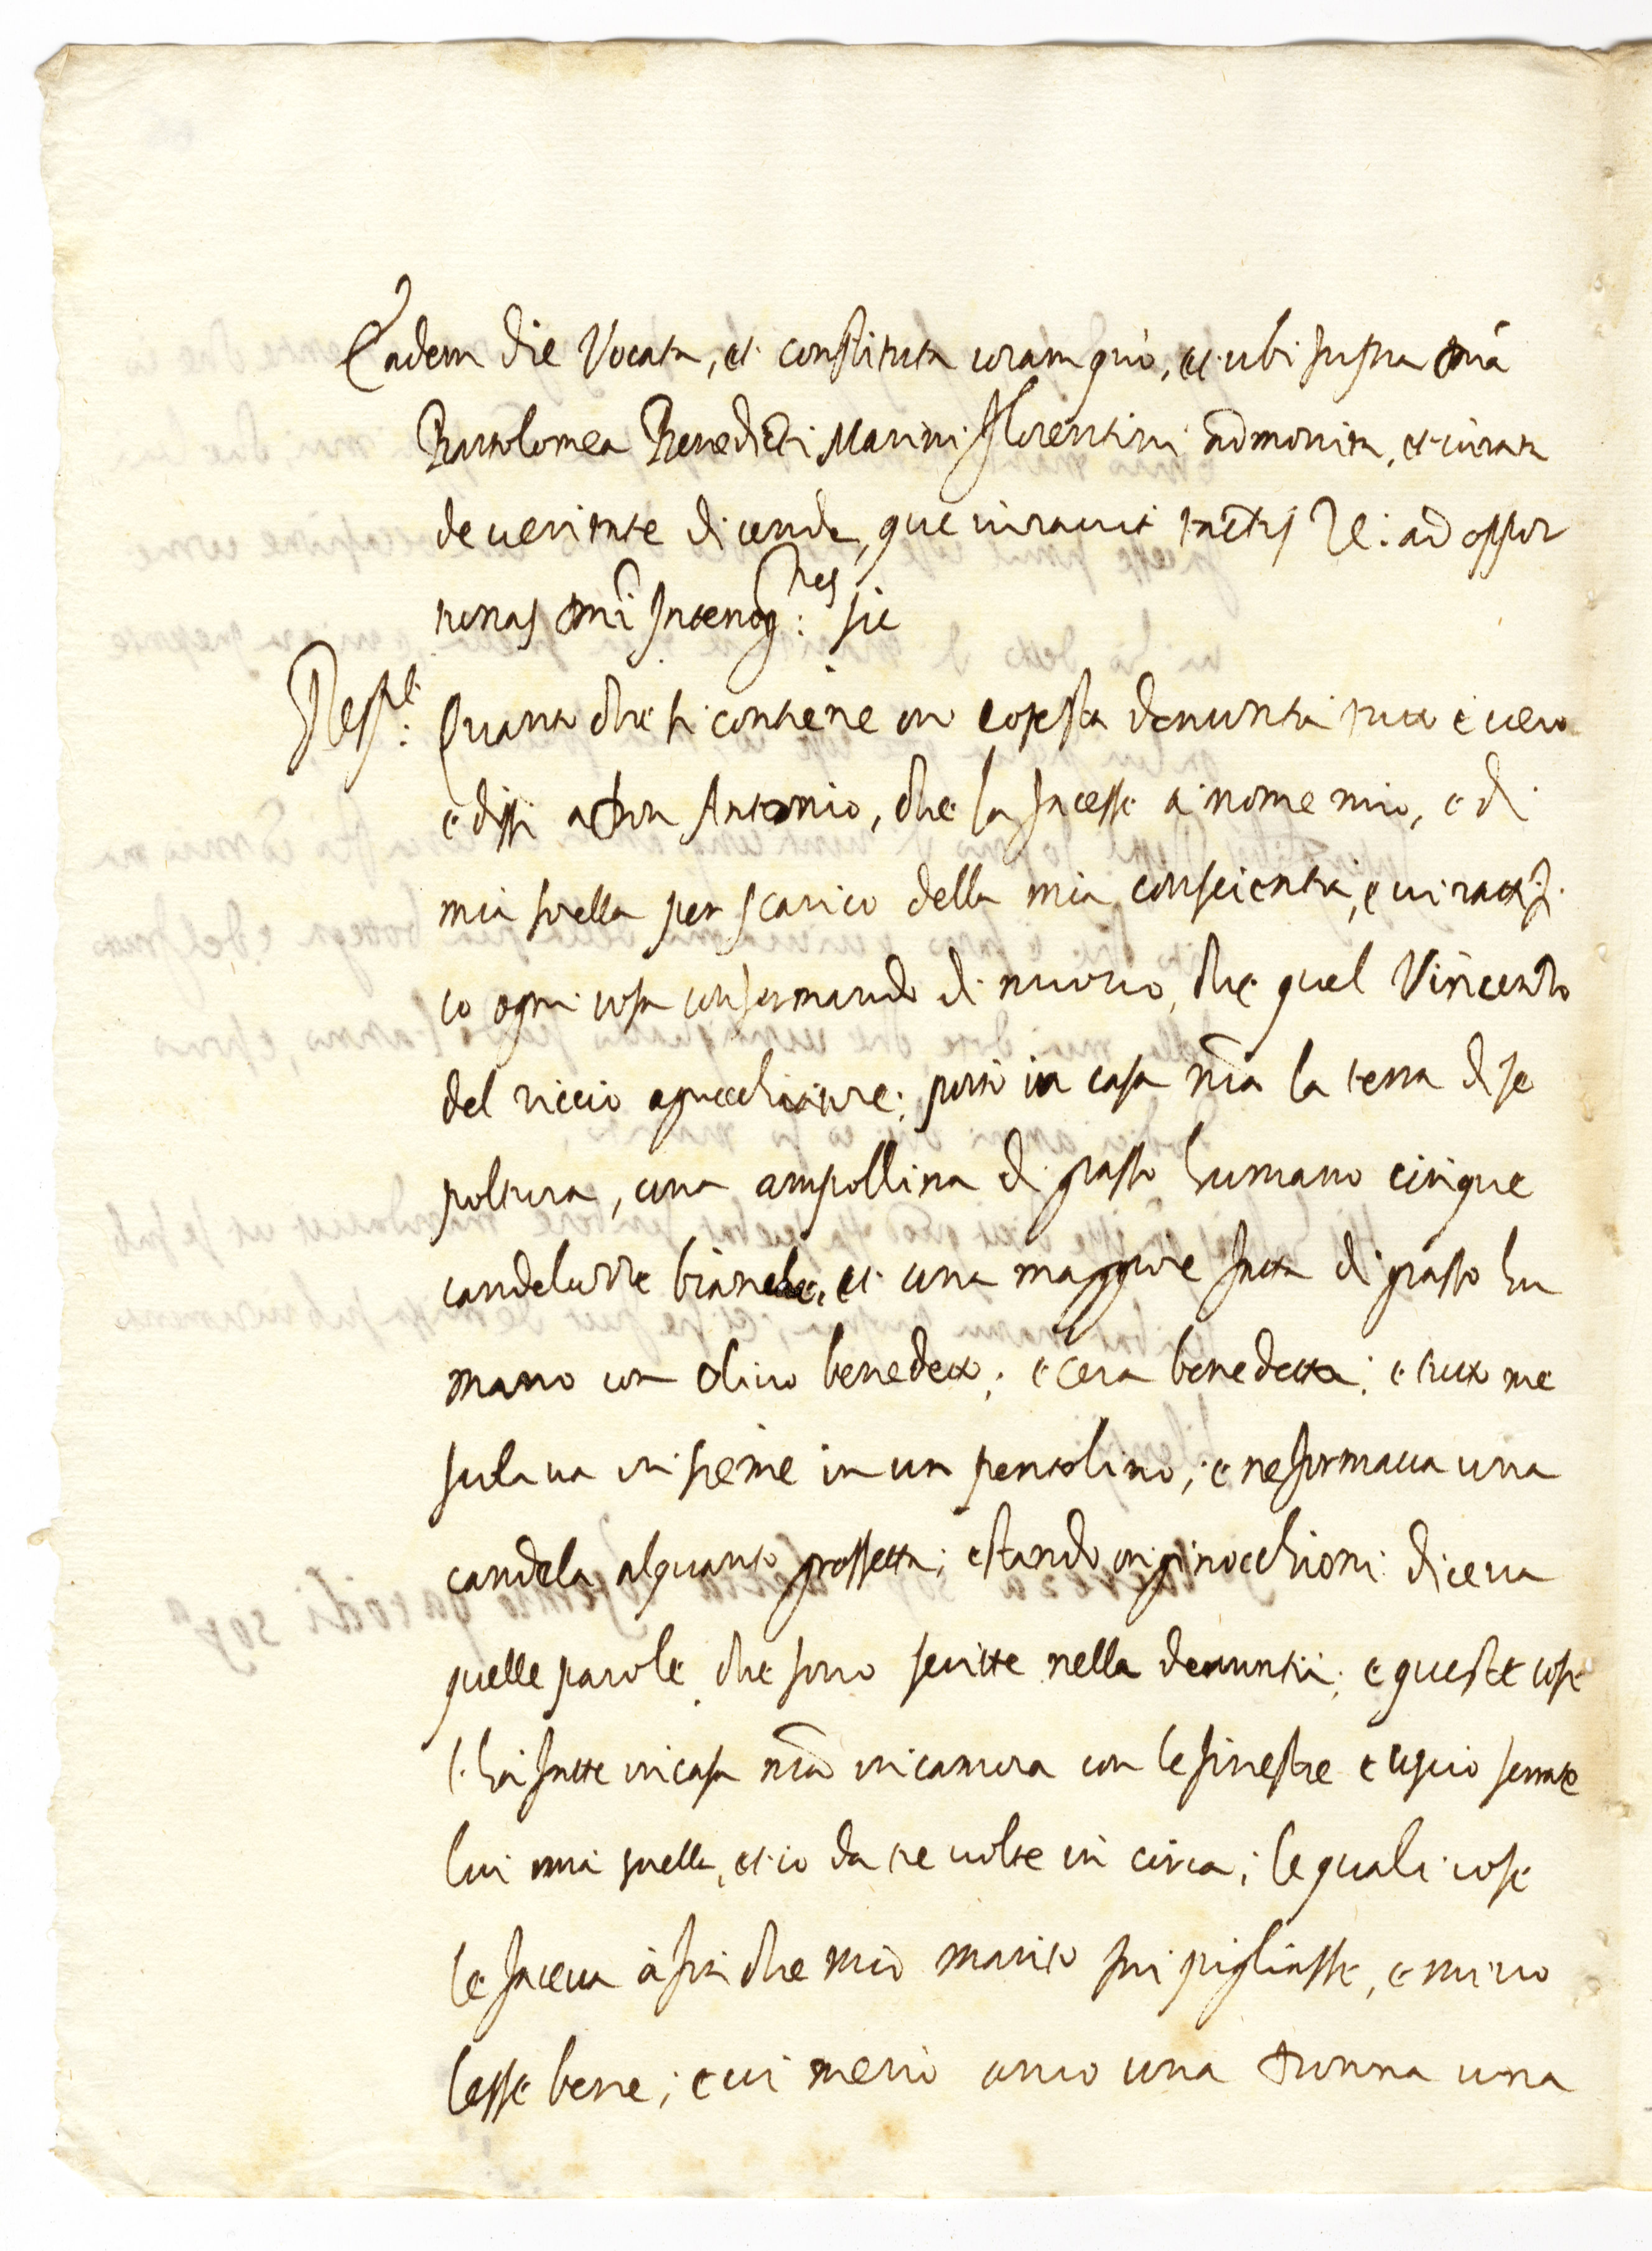 Eadem die Vocata, et constituta coram quo, et ubi supra dn̄a
Bartolomea Benedicti Marini florentini admonita, et iurata
de veritate dicenda, que iuravit tactis &c: ad oppor
tunas dn̄i Interrog:nes sic
Resp.t: Quanto che si contiene in cotesta denuntia tutto è vero
e dissi a don Antonio, che la facesse a nome mio, e di
mia sorella per scarico della mia conscientia, e vi ratifi
co ogni cosa confermando di nuovo, che quel Vincentio
del riccio agucchiatore; portò in casa n̄ra la terra di se
poltura, una ampollina di grasso humano cinque
candeluzze bianche, et una maggiore fatta di grasso hu
mano con olivo benedetto; e cera benedetta; e tutto me
scolava insieme in un pentolino; e ne formava una
candela alquanto grossetta; e stando in ginocchioni diceva
quelle parole che sono scritte nella denuntia; e queste cose
l'hà fatte in casa n̄ra in camera con le finestre e uscio serrate
lui mia sorella, et io da tre volte in circa; le quali cose
le faceva à fin che mio marito mi pigliasse, e mi vo
lesse bene; e vi menò anco una donna una